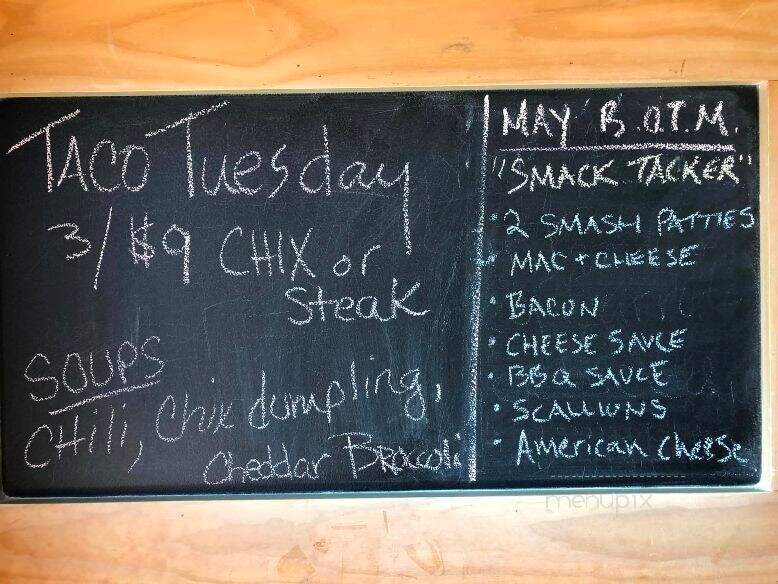 Taco Tuesday
3/$9 CHIX or
Steak
SOUPS
CHili, Chix dumpling,
Cheddar Broccoli
MAY B.O.T.M.
"SMACK TACKER"
• 2 SMASH PATTIES
• MAC + CHEESE
• BACON
• CHEESE SAUCE
• BBQ SAUCE
• SCALLIONS
• American Cheese
menupix